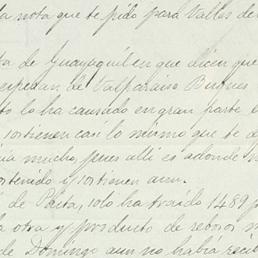 la nota que te pido para Valles de
ta de Guayaquil en que dicen que
espedan de Valparaiso Buques
to lo ha causado en gran parte
sostienen casi lo mismo que te d
mucho, pues alli es adonde
ostenido y sostienen aun.
de Paita, solo ha traido 1489 p
la otra y producto de rebosos
de Domingo aun no habia recib